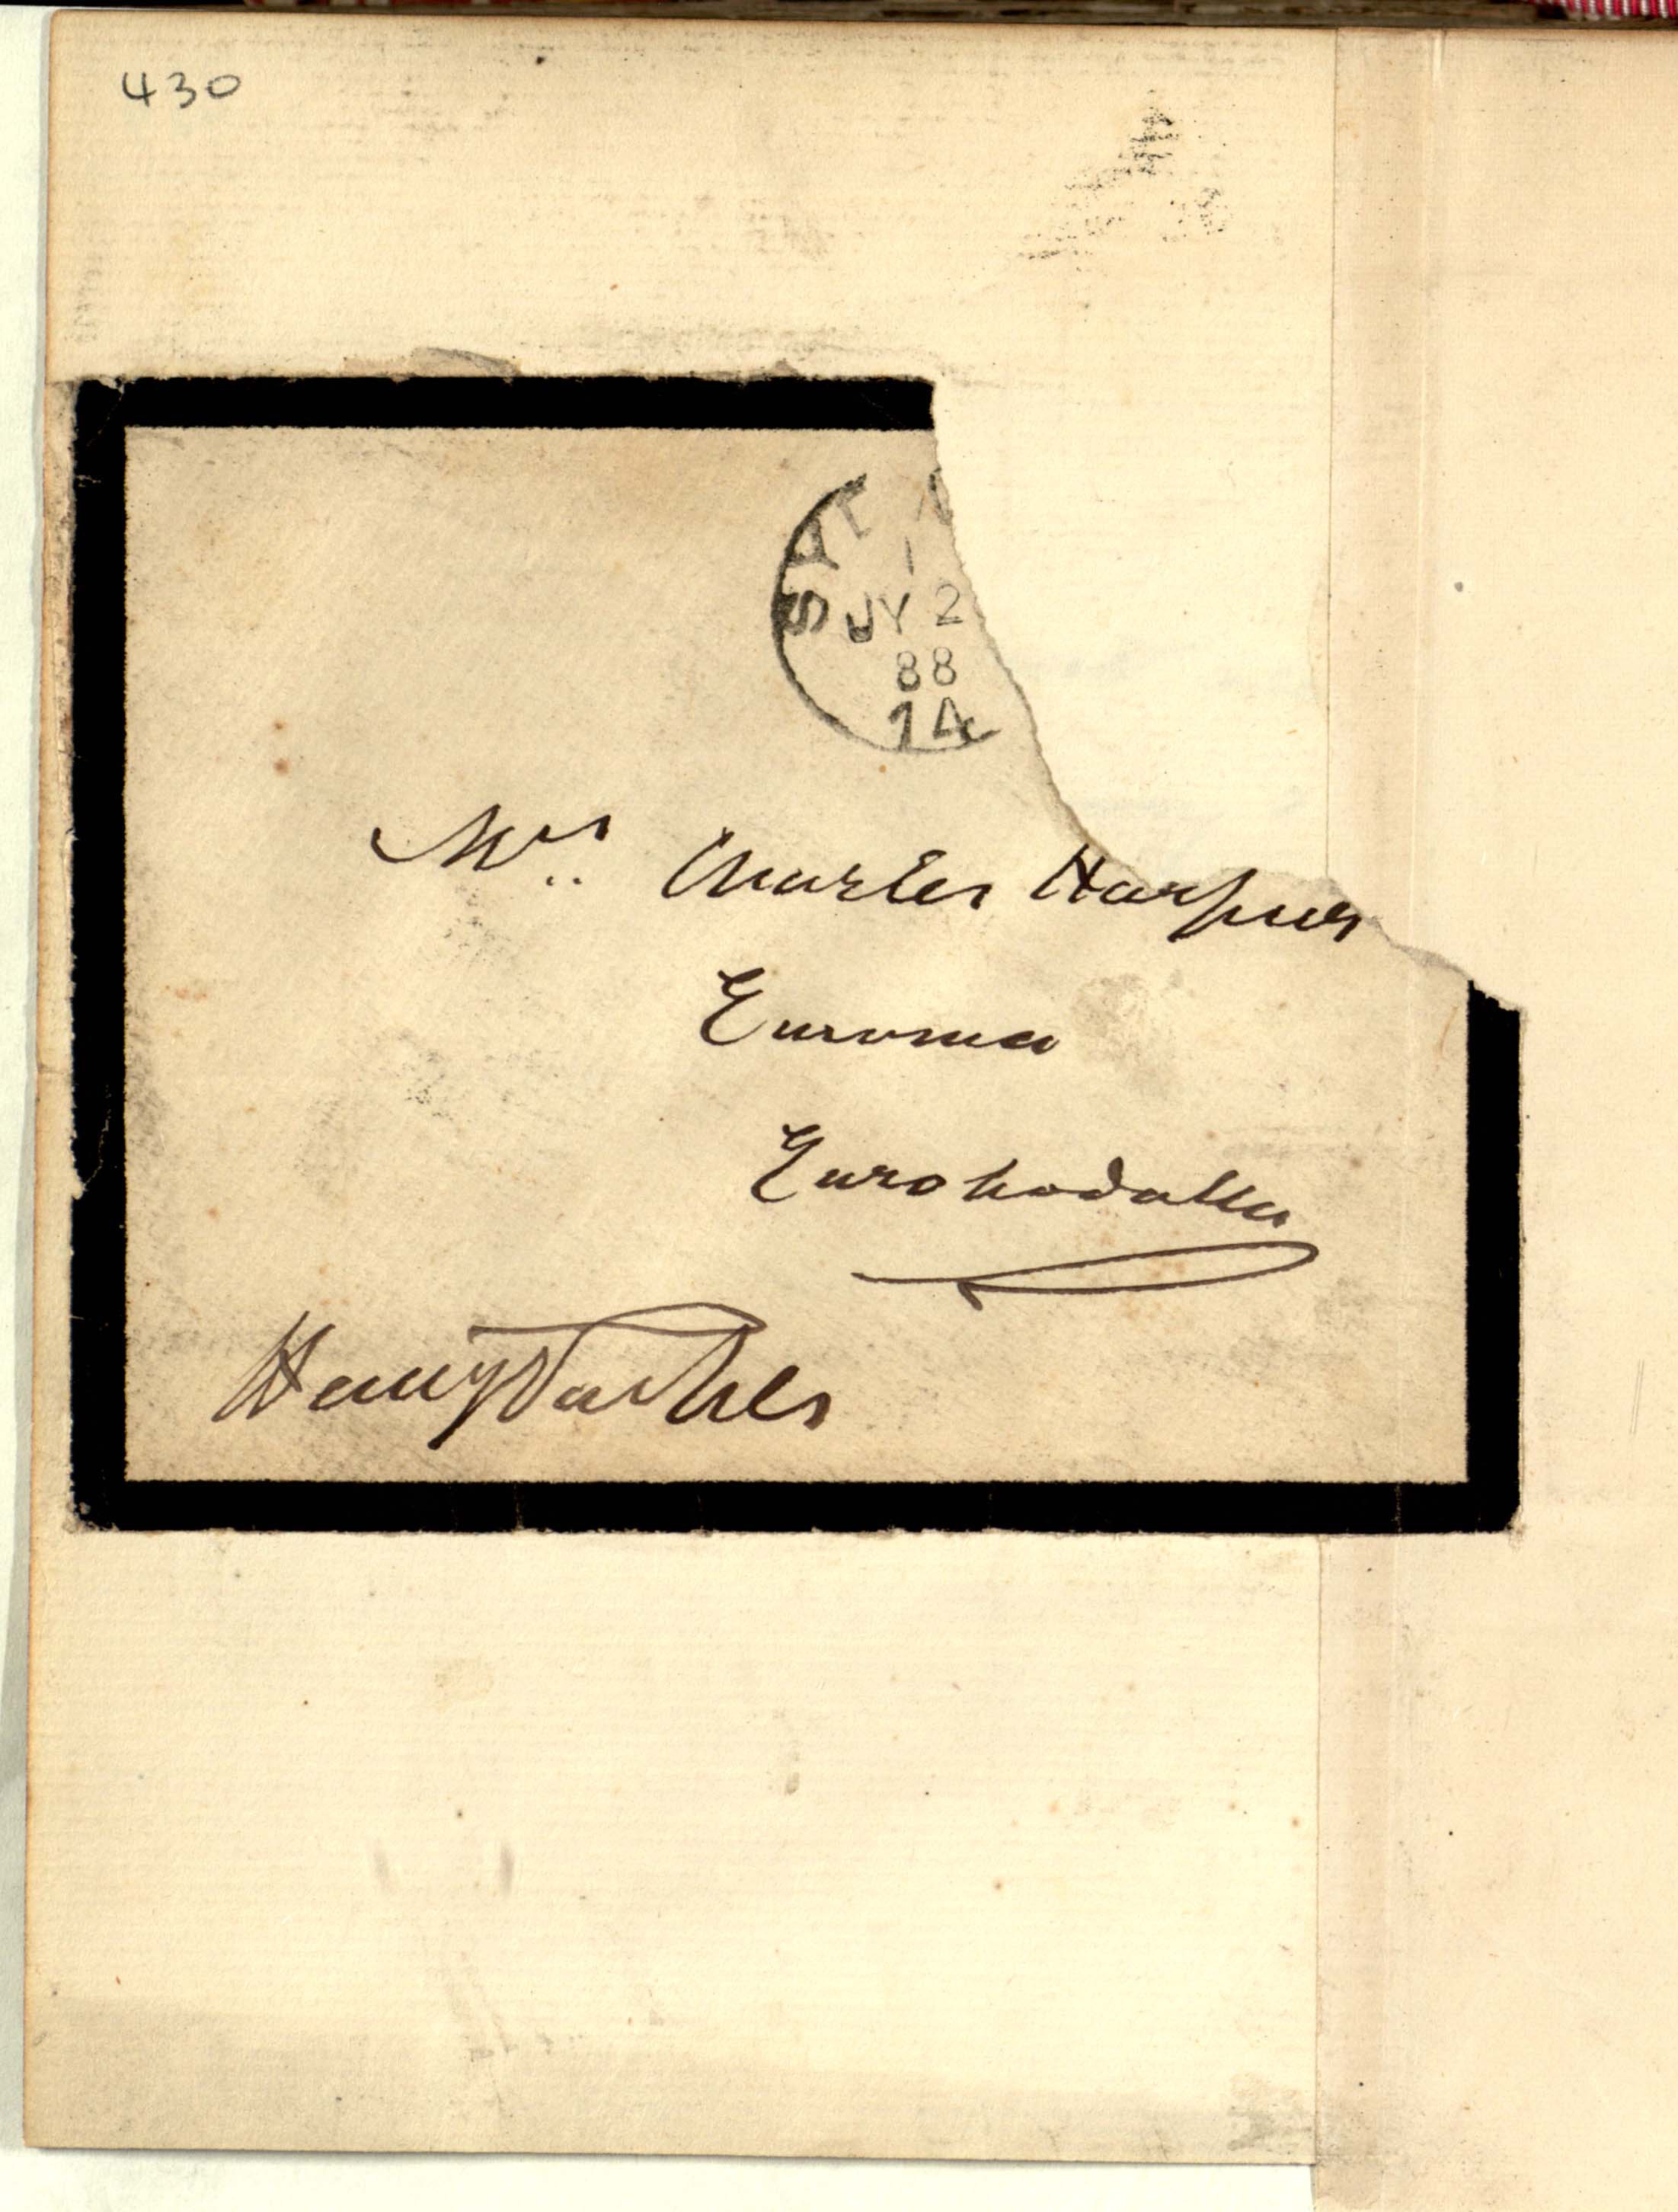 430
SYD N
1
JY 2
88
14
Mrs. Charles Harpur
Euroma
Eurobodalla
Henry Parkes